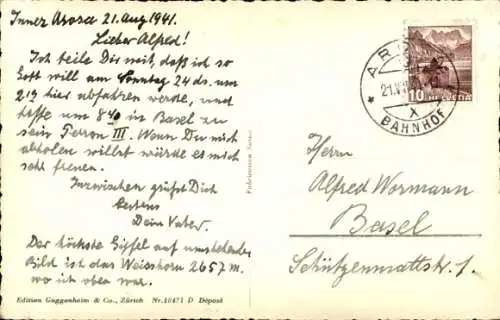 Inner Arosa 21. Aug 1941.
Lieber Alfred!
Ich teile Dir mit, daß ich so
Gott will am Sonntag 24 ds. um
2 19 hier abfahren werde, und
hoffe um 8 40 in Basel zu
sein Perron III. Wenn Du mich
abholen willst würde es mich
sehr freuen.
Inzwischen grüßt Dich
bestens
Dein Vater.
Der höchste Gipfel auf umstehendem
Bild ist das Weisshorn 2657 m.
wo ich oben war.
Edition Guggenheim & Co., Zürich Nr. 10471 D Déposé
10 HELVETIA
BAHNHOF
X
Herrn
Alfred Wormann
Basel
Schützenmattstr. 1.